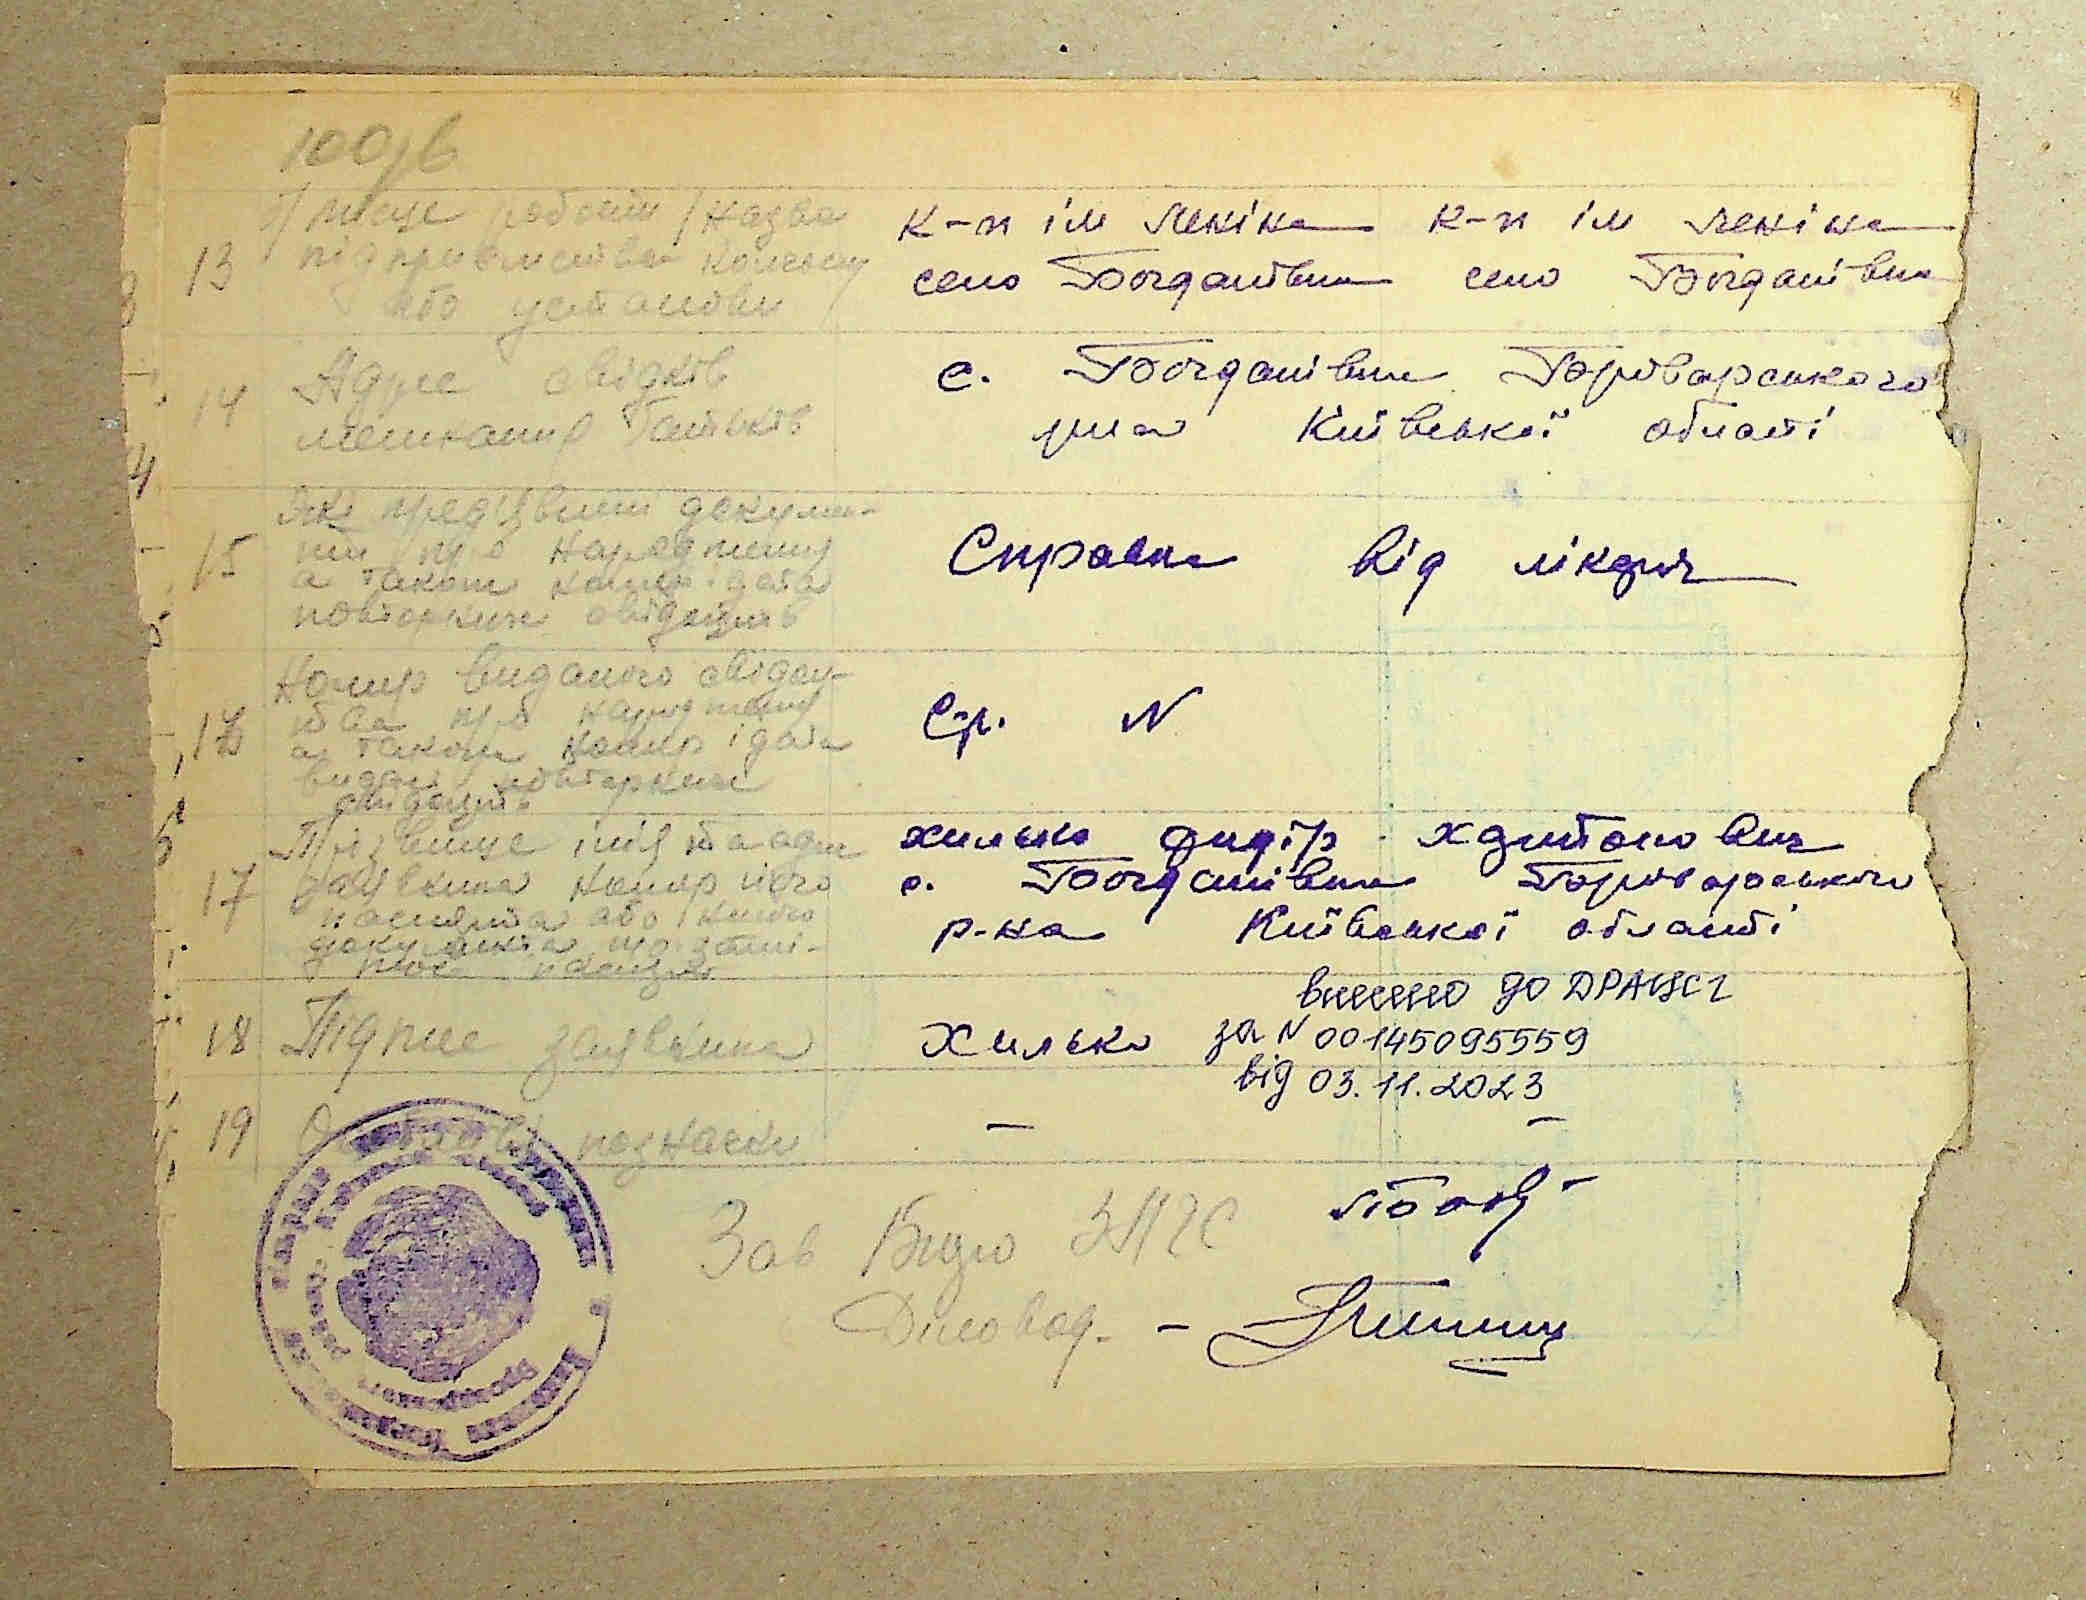 100/в
13 місце роботи / Назва
підприємства колгоспу
або установи
к-п ім Леніна к-п ім Леніна
село Богданівка село Богданівка
14 Адрес свідків
мешканця Батьків
с. Богданівка Броварського
р-на Київської області
15 Які пред'явлені докумен-
ти про народження
а також номер і дата
повторних свідоцтв
Справка від лікаря
16 Номер виданого свідоц-
тва про народження
а також номер і дата
видачі повторних
свідоцтв
Ср. N
17 Прізвище імя та адрес
заявника номер його
паспорта або іншого
документа що заміню-
Хилько Федір Харитонович
с. Богданівка Броварського
р-на Київської області
внесено до ДРАЦСГ
18 Підпис заявника Хилько за N 00145095559
від 03.11.2023
19 Особливі позначки – –
Зав Бюро ЗАГС
Діловод. –